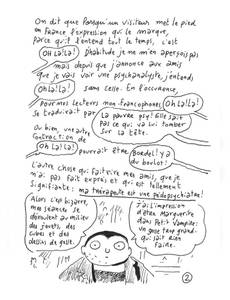 On dit que lorsqu'un visiteur met le pied
en France l'expression qui le marque,
parce qu'il l'entend tout le temps, c'est
Oh là là! D'habitude je ne m'en aperçois pas
mais depuis que j'annonce aux amis
que je vais voir une psychanalyste, j'entends
Oh là là! sans cesse. En l'occurence,
pour mes lecteurs non francophones, Oh là là!
se traduirait par La pauvre psy! Elle sait
pas ce qui va lui tomber
sur la tête.
Ou bien, une autre
contraction de
Oh là là! pourrait être Bordel! y a
du boulot!
L'autre chose qui fait rire mes amis, que je
n'ai pas fait exprès et qui est tellement
signifiante: ma thérapeute est une pédopsychiatre!
Alors c'est bizarre,
mes séances se
déroulent au milieu
des jouets, des
cubes et des
dessins de gosse.
J'ai l'impression
d'être Marguerite
dans Petit Vampire:
un gros truc grand
qui sait rien
faire.
2